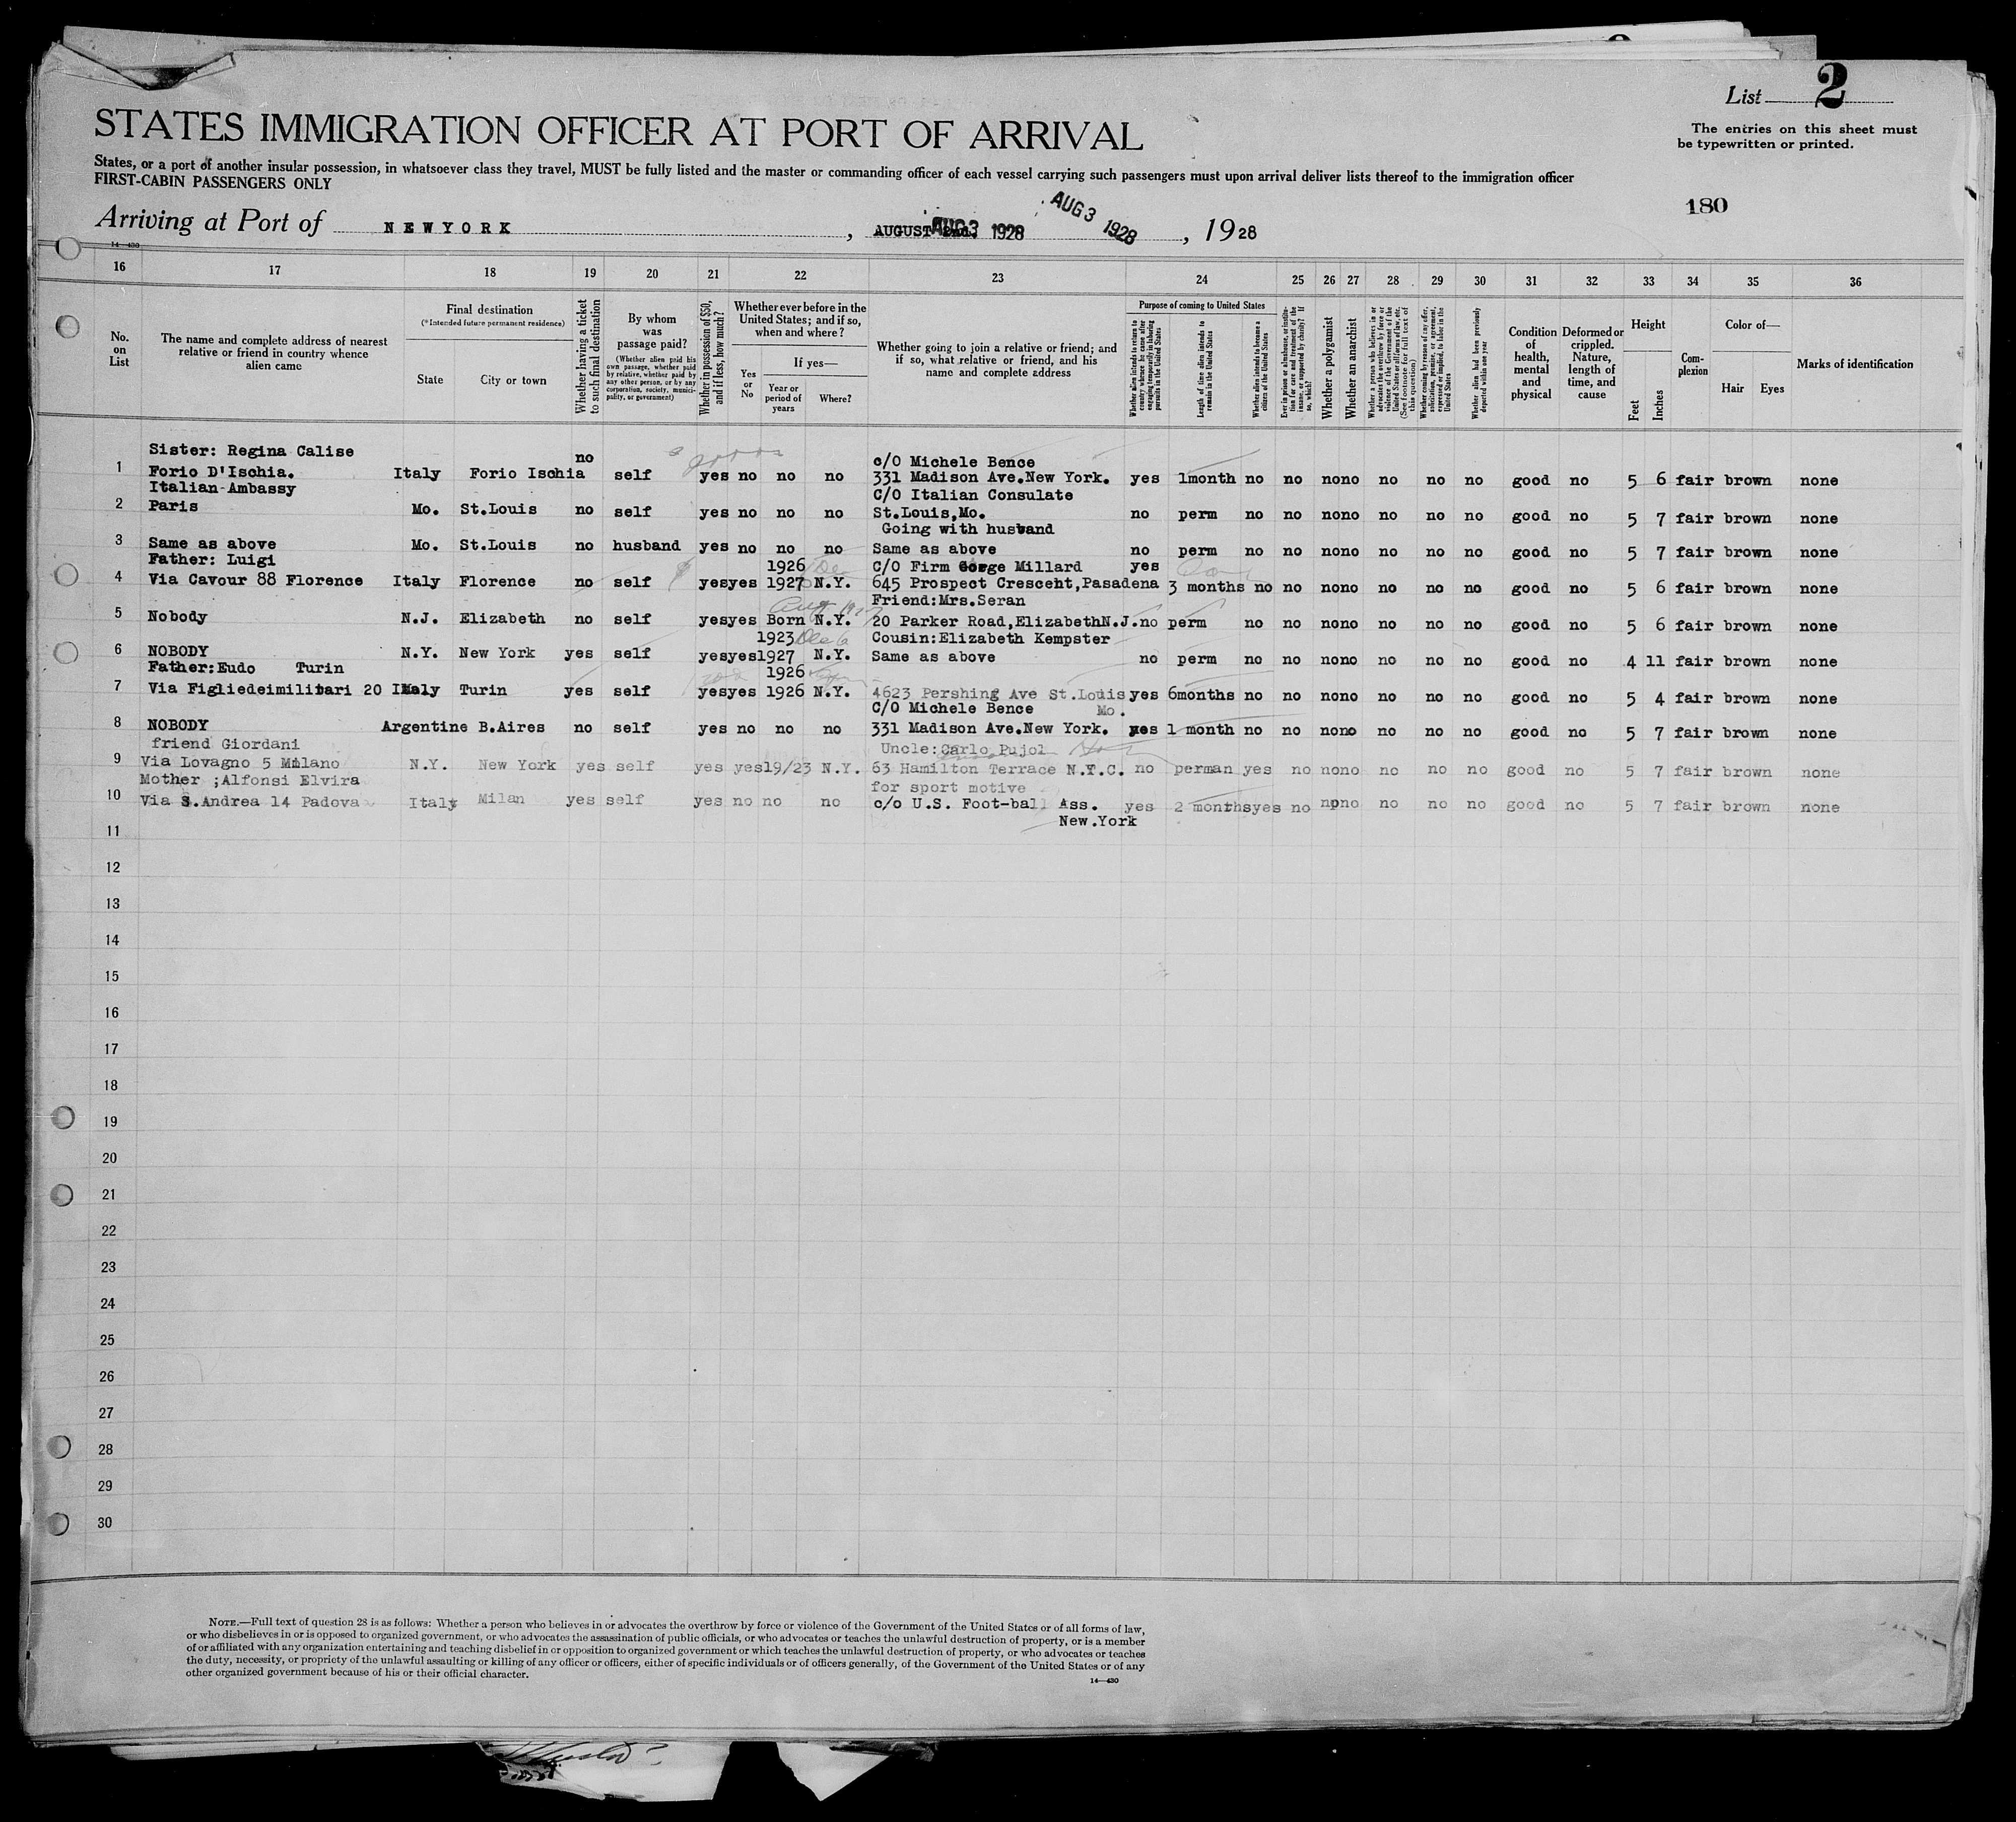 List 2
STATES IMMIGRATION OFFICER AT PORT OF ARRIVAL
The entries on this sheet must
be typewritten or printed.
States, or a port of another insular possession, in whatsoever class they travel, MUST be fully listed and the master or commanding officer of each vessel carrying such passengers must upon arrival deliver lists thereof to the immigration officer
FIRST-CABIN PASSENGERS ONLY
180
Arriving at Port of NEWYORK, AUGUST AUG 3 1928 AUG 3 1928, 1928
14—430
16 17 18 19 20 21 22 23 24 25 26 27 28 29 30 31 32 33 34 35 36
No.
on
List
The name and complete address of nearest
relative or friend in country whence
alien came
Final destination
(*Intended future permanent residence)
State
City or town
Whether having a ticket
to such final destination
By whom
was
passage paid?
(Whether alien paid his
own passage, whether paid
by relative, whether paid by
any other person, or by any
corporation, society, munici-
pality, or government)
Whether in possession of $50,
and if less, how much?
Whether ever before in the
United States; and if so,
when and where?
Yes
or
No
If yes—
Year or
period of
years
Where?
Whether going to join a relative or friend; and
if so, what relative or friend, and his
name and complete address
Purpose of coming to United States
Whether alien intends to return to
country whence he came after
engaging temporarily in laboring
pursuits in the United States
Length of time alien intends to
remain in the United States
Whether alien intends to become a
citizen of the United States
Ever in prison or almshouse, or institu-
tion for care and treatment of the
insane, or supported by charity? If
so, which?
Whether a polygamist
Whether an anarchist
Whether a person who believes in or
advocates the overthrow by force or
violence of the Government of the
United States or all forms of law, etc.
(See footnote for full text of
this question)
Whether coming by reason of any offer,
solicitation, promise, or agreement,
expressed or implied, to labor in the
United States
Whether alien had been previously
deported within one year
Condition
of
health,
mental
and
physical
Deformed or
crippled.
Nature,
length of
time, and
cause
Height
Feet
Inches
Com-
plexion
Color of—
Hair
Eyes
Marks of identification
Sister: Regina Calise no c/O Michele Bence
1 Forio D'Ischia. Italy Forio Ischia self yes no no no 331 Madison Ave.New York. yes 1month no no nono no no no good no 5 6 fair brown none
Italian Ambassy C/O Italian Consulate
2 Paris Mo. St.Louis no self yes no no no St.Louis,Mo. no perm no no nono no no no good no 5 7 fair brown none
Going with husband
3 Same as above Mo. St.Louis no husband yes no no no Same as above no perm no no nono no no no good no 5 7 fair brown none
Father: Luigi 1926 C/O Firm George Millard yes
4 Via Cavour 88 Florence Italy Florence no self yesyes 1927 N.Y. 645 Prospect Crescent,Pasadena 3 months no no nono no no no good no 5 6 fair brown none
Friend:Mrs.Seran
5 Nobody N.J. Elizabeth no self yesyes Born N.Y. 20 Parker Road,ElizabethN.J.no perm no no nono no no no good no 5 6 fair brown none
1923 Cousin:Elizabeth Kempster
6 NOBODY N.Y. New York yes self yesyes1927 N.Y. Same as above no perm no no nono no no no good no 4 11 fair brown none
Father:Eudo Turin 1926
7 Via Figliedeimilitari 20 Italy Turin yes self yesyes 1926 N.Y. 4623 Pershing Ave St.Louis yes 6months no no nono no no no good no 5 4 fair brown none
C/O Michele Bence Mo.
8 NOBODY Argentine B.Aires no self yes no no no 331 Madison Ave.New York. yes 1 month no no nono no no no good no 5 7 fair brown none
friend Giordani Uncle:Carlo Pujol
9 Via Lovagno 5 Milano N.Y. New York yes self yes yes19/23 N.Y. 63 Hamilton Terrace N.Y.C. no perman yes no nono no no no good no 5 7 fair brown none
Mother ;Alfonsi Elvira for sport motive
10 Via S.Andrea 14 Padova Italy Milan yes self yes no no no c/o U.S. Foot-ball Ass. yes 2 monthsyes no nono no no no good no 5 7 fair brown none
11 New.York
12
13
14
15
16
17
18
19
20
21
22
23
24
25
26
27
28
29
30
NOTE.—Full text of question 28 is as follows: Whether a person who believes in or advocates the overthrow by force or violence of the Government of the United States or of all forms of law,
or who disbelieves in or is opposed to organized government, or who advocates the assassination of public officials, or who advocates or teaches the unlawful destruction of property, or is a member
of or affiliated with any organization entertaining and teaching disbelief in or opposition to organized government or which teaches the unlawful destruction of property, or who advocates or teaches
the duty, necessity, or propriety of the unlawful assaulting or killing of any officer or officers, either of specific individuals or of officers generally, of the Government of the United States or of any
other organized government because of his or their official character.
14—430